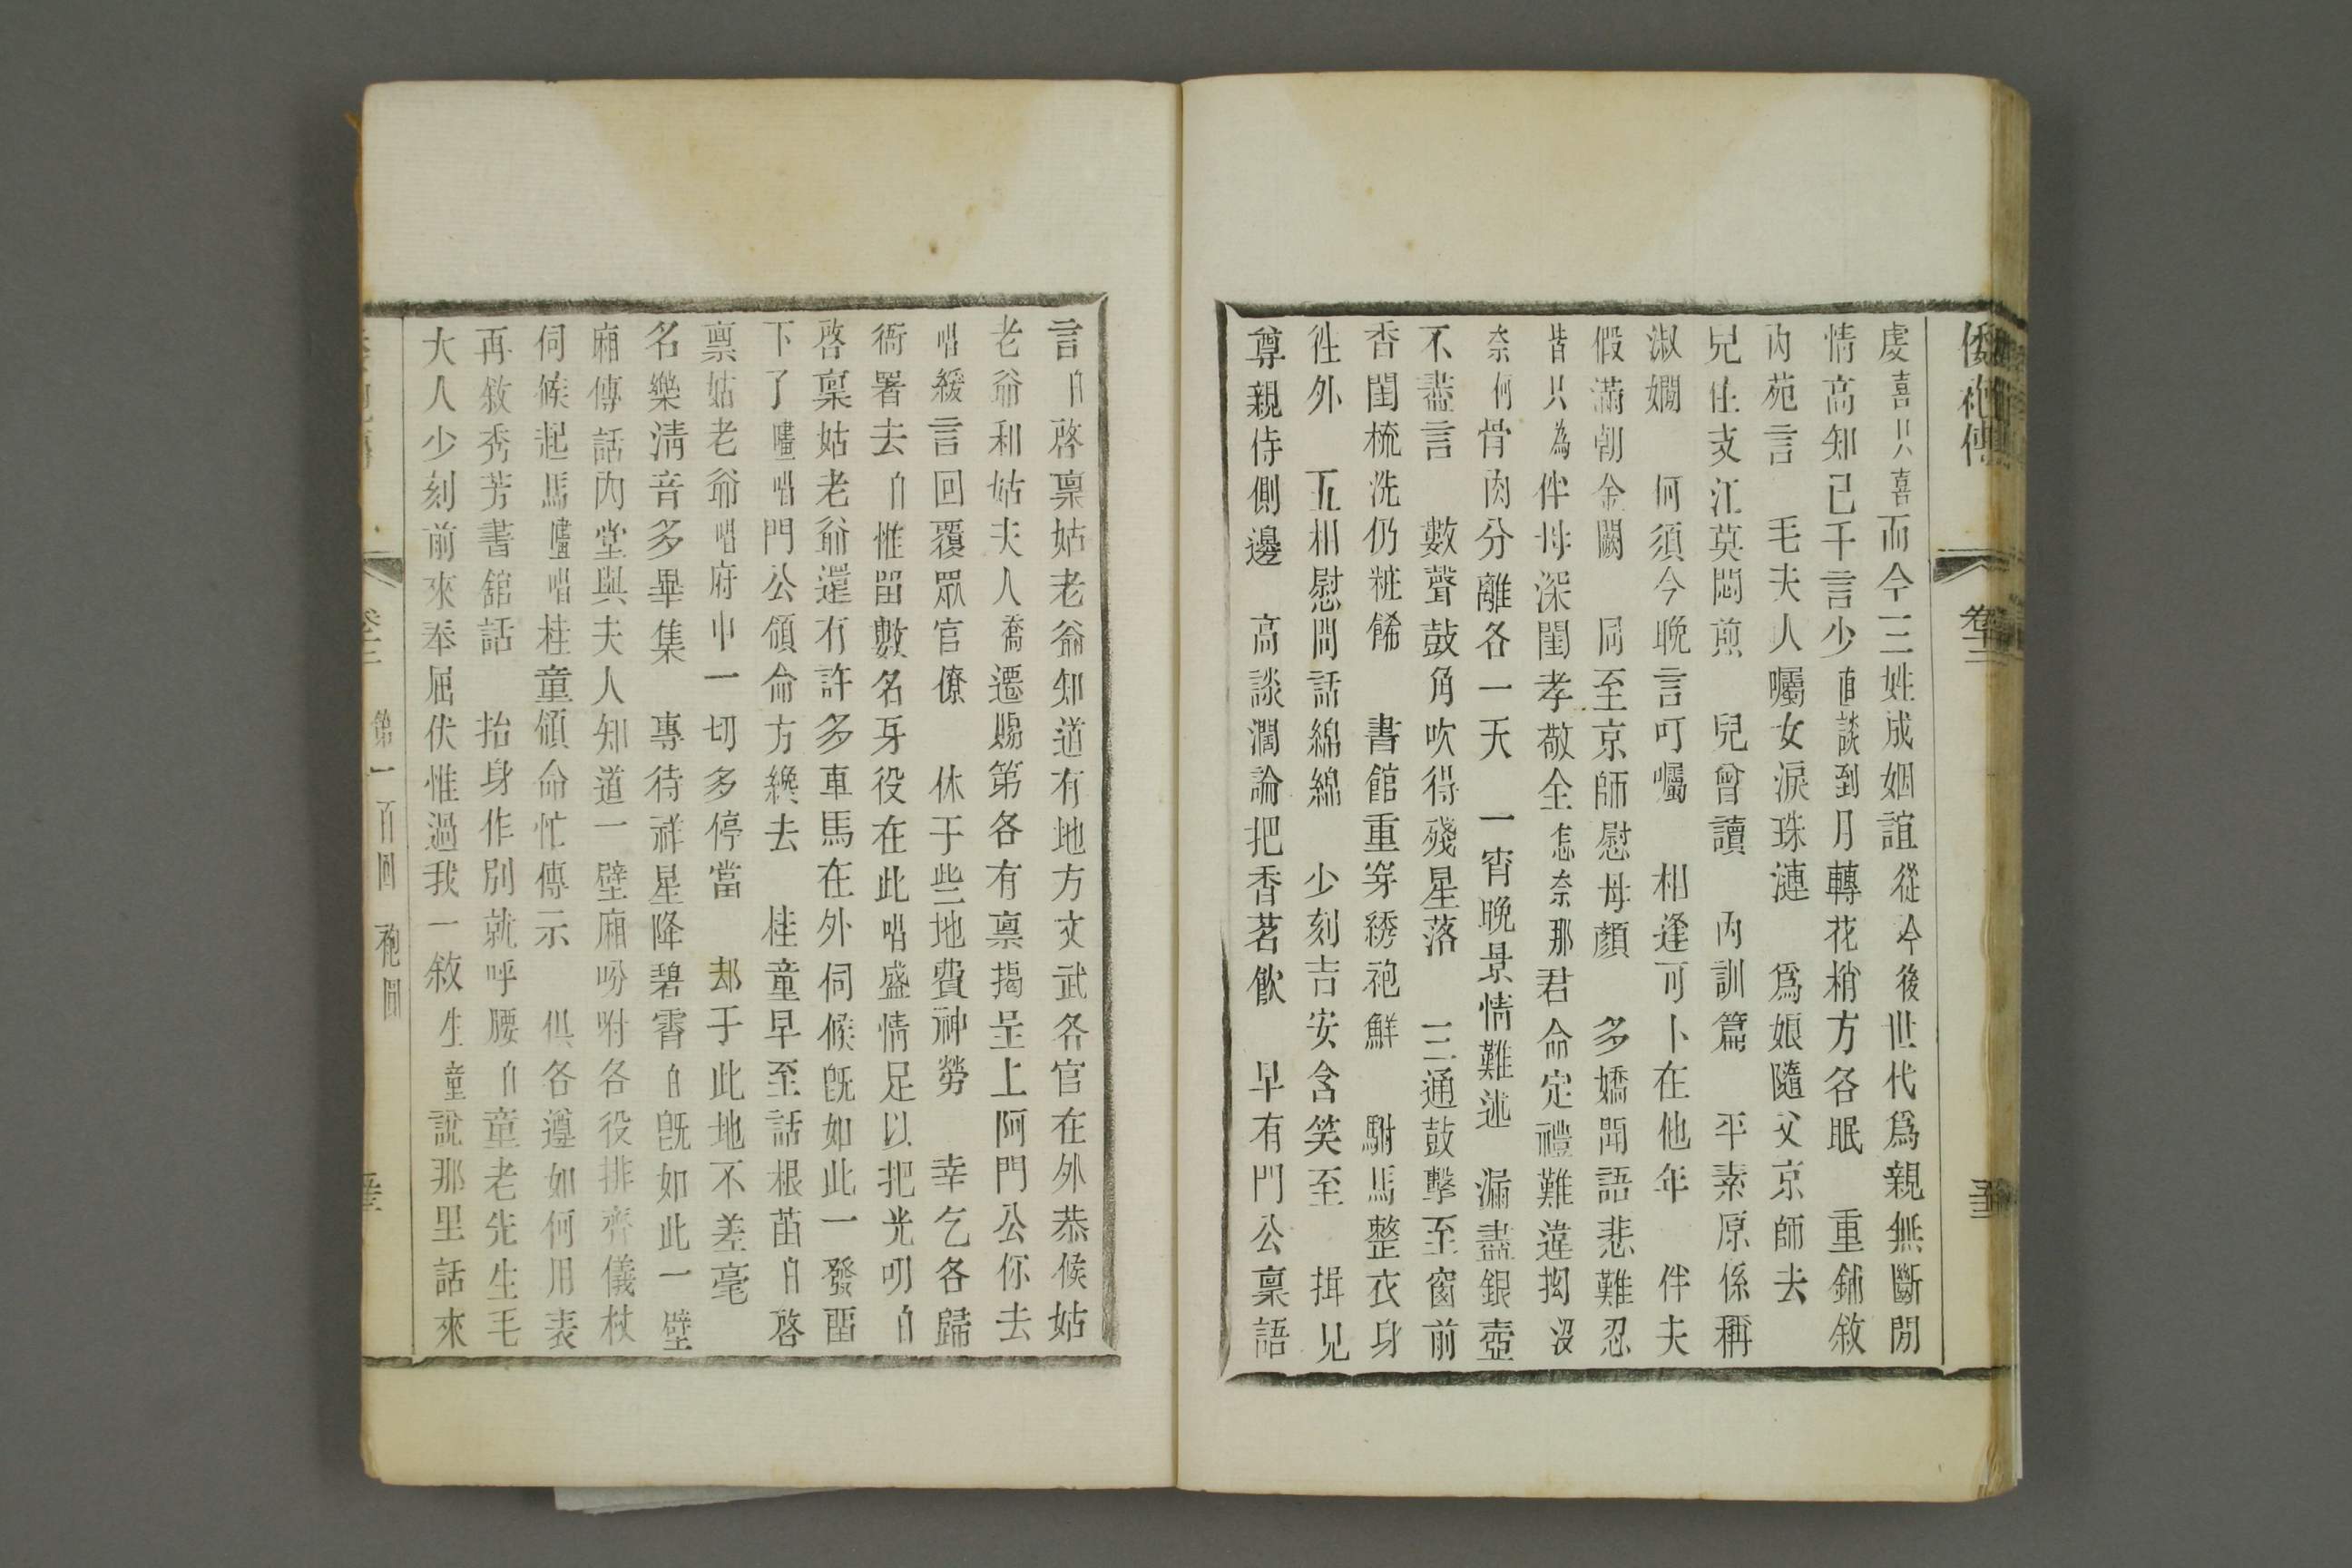 倭袍傳
卷十二
虔喜只喜而今三姓成姻誼從今後世代爲親無斷閒
情高知己千言少直談到月轉花梢方各眠 重鋪敘
內苑言 毛夫人囑女淚珠漣 爲娘隨父京師去
兒住支江莫悶煎 兒曾讀 內訓篇 平素原係稱
淑嫻 何須今晚言叮囑 相逢可卜在他年 伴夫
假滿朝金闕 同至京師慰母顏 多嬌聞語悲難忍
皆只為伴母深閨孝敬全怎奈那君命定禮難違拗沒
奈何骨肉分離各一天 一宵晚景情難述 漏盡銀壺
不盡言 數聲鼓角吹得殘星落 三通鼓擊至窗前
香閨梳洗仍粧餙 書館重穿綉袍鮮 駙馬整衣身
徃外 互相慰問話綿綿 少刻吉安含笑至 揖見
尊親侍側邊 高談濶論把香茗飮 早有門公稟語
言白啓稟姑老爺知道有地方文武各官在外恭候姑
老爺和姑夫人喬遷賜第各有稟揭呈上阿門公你去
唱緩言回覆眾官僚 休于些地費神勞 幸乞各歸
衙署去白惟留數名牙役在此唱盛情足以把光叨白
啓稟姑老爺還有許多車馬在外伺候旣如此一發畱
下了嚧唱門公領命方纔去 桂童早至話根苗白啓
稟姑老爺唱府中一切多停當 刼于此地不差毫
名樂淸音多畢集 專待祥星降碧霄白旣如此一壁
廂傳話內堂與夫人知道一壁廂吩咐各役排齊儀杖
伺候起馬嚧唱桂童領命忙傳示 俱各遵如何用表
再敘秀芳書舘話 抬身作別就呼腰白童老先生毛
大人少刻前來奉屈伏惟過我一敘生童說那里話來
第一百回 袍圓